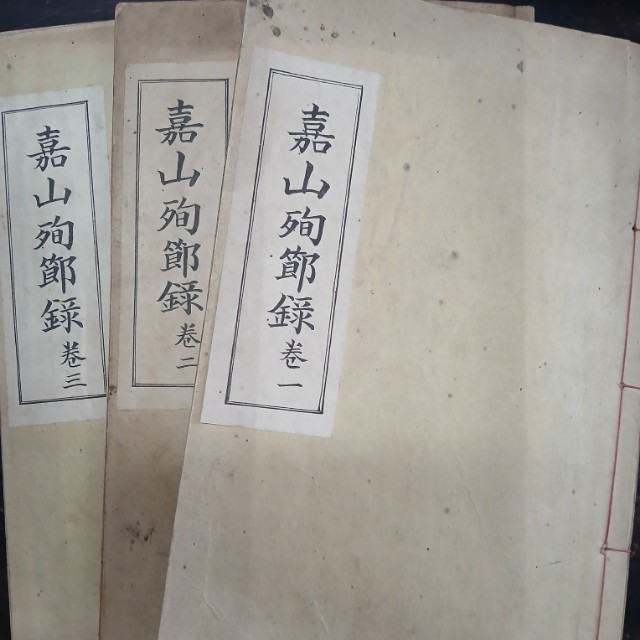 嘉山殉節録 卷一
嘉山殉節録 卷二
嘉山殉節録 卷三